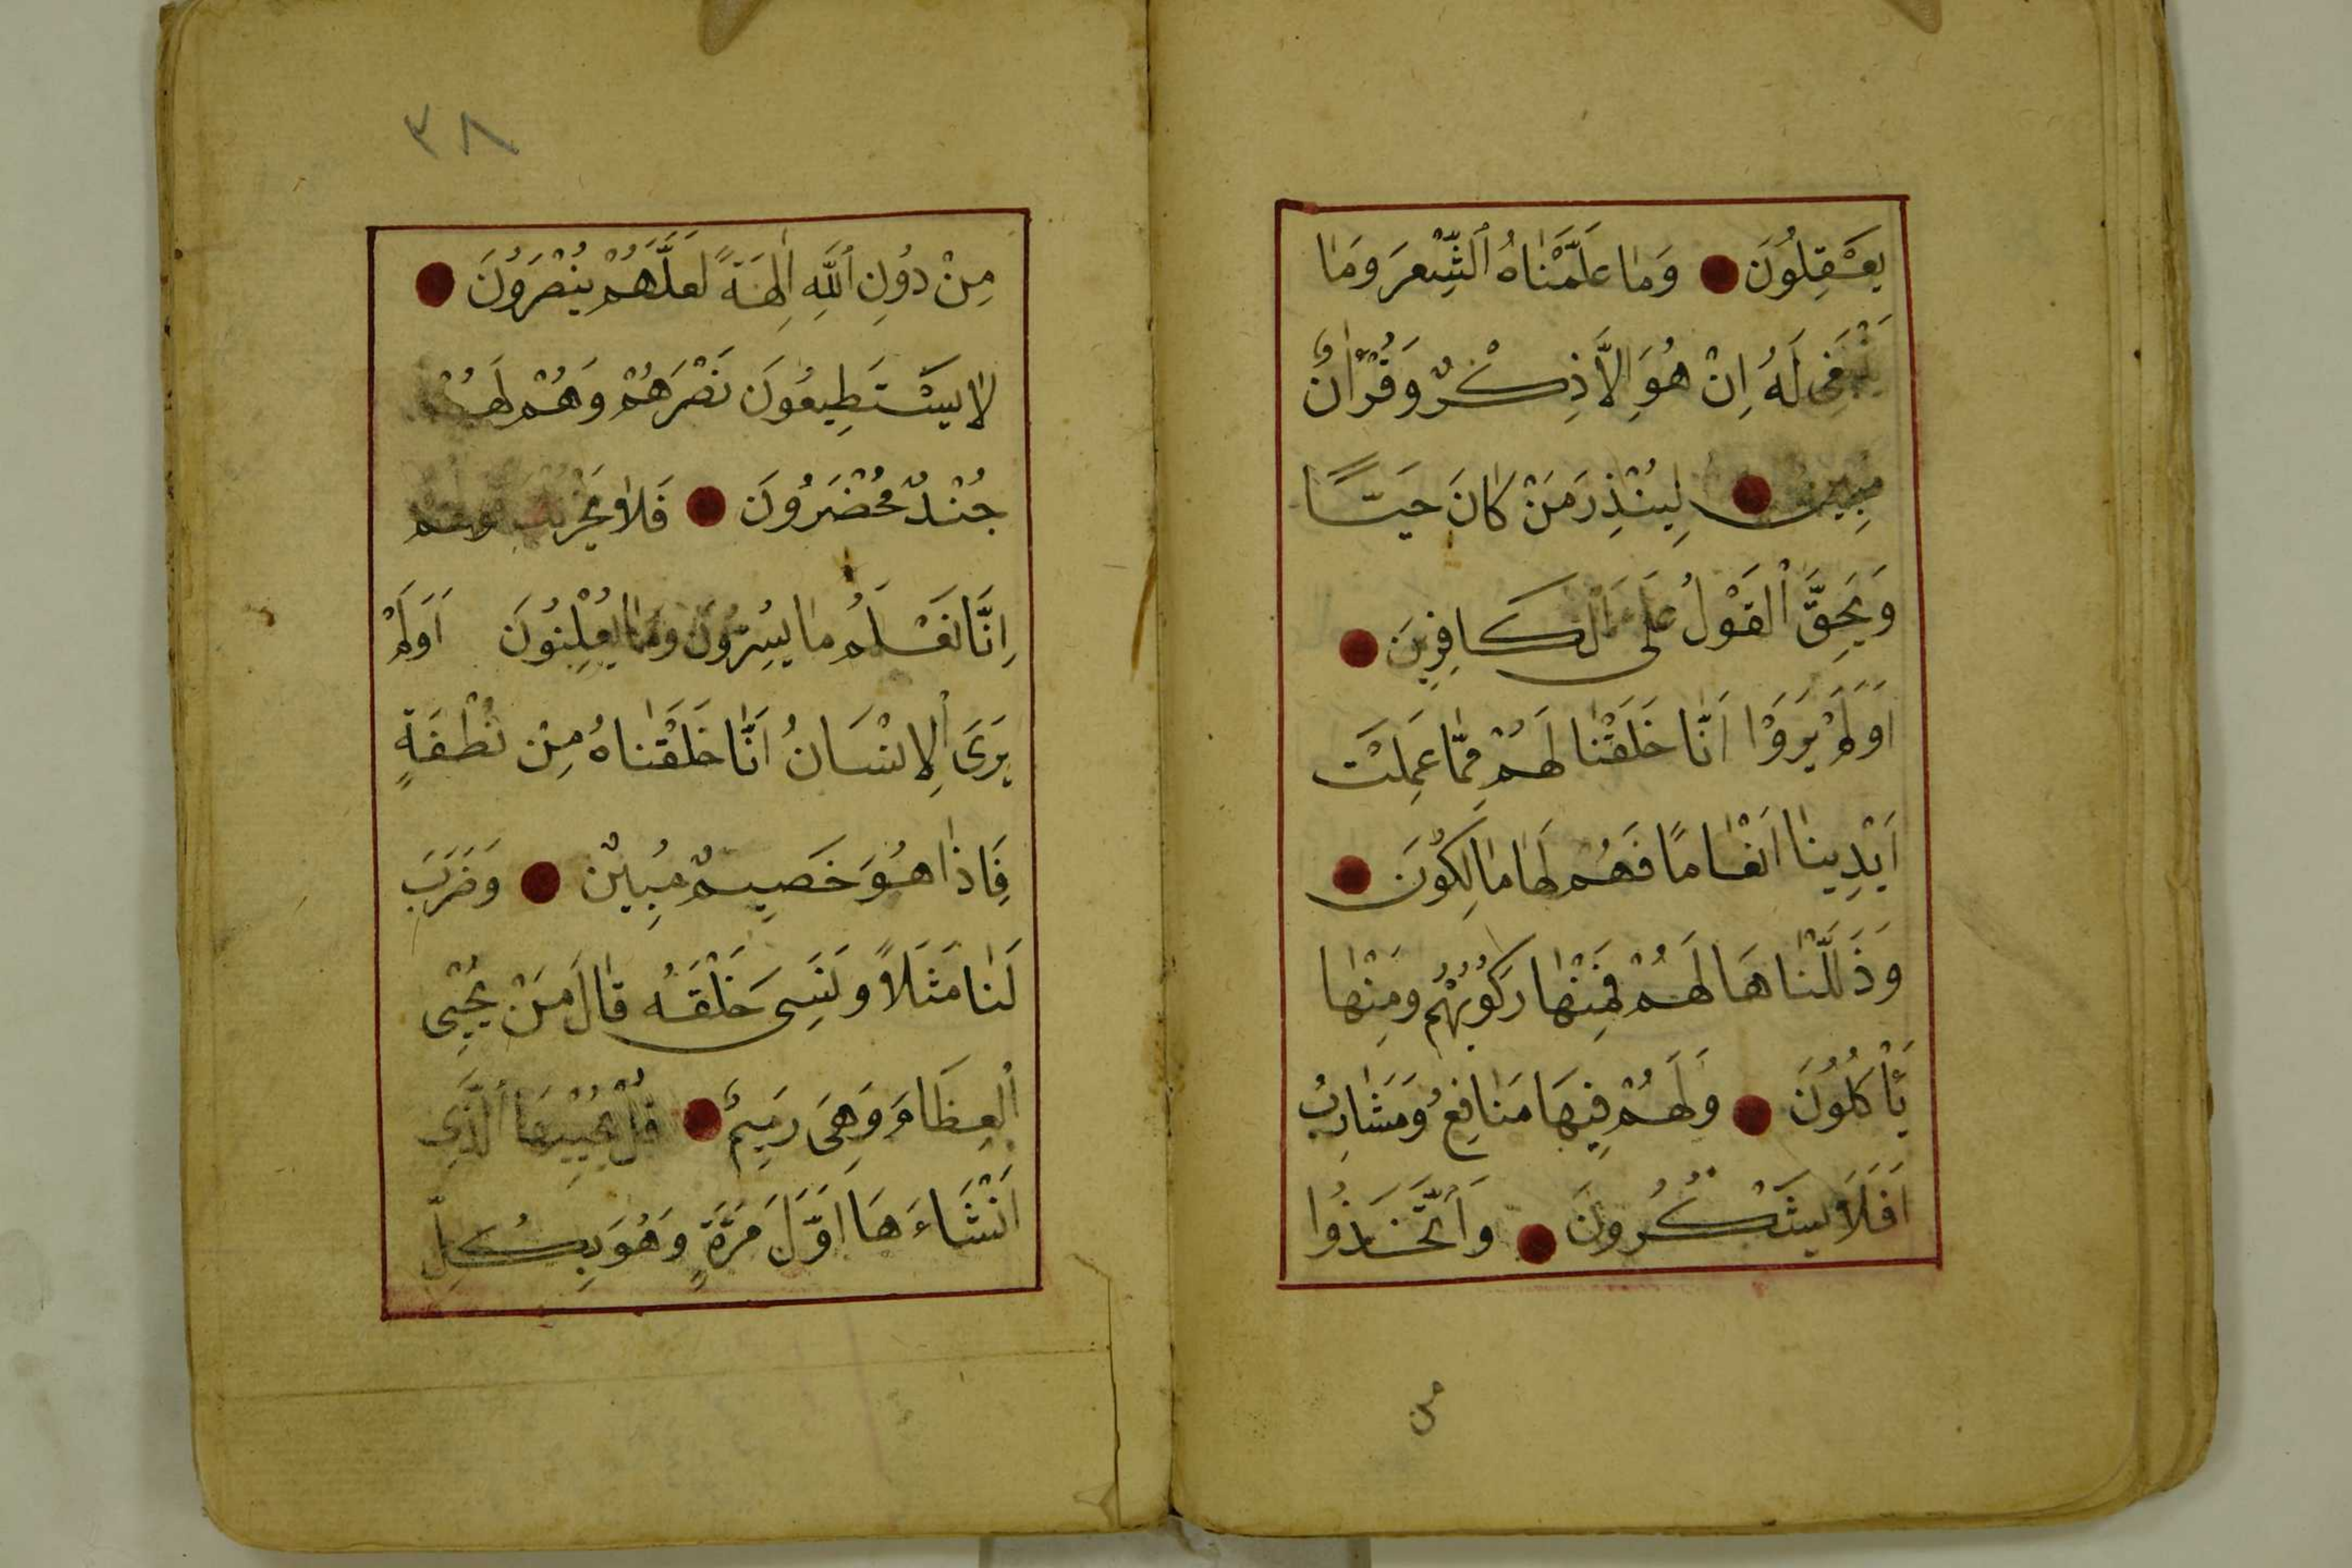 يَعْقِلُونَ وَمَا عَلَّمْنَاهُ ٱلشِّعْرَ وَمَا
يَنْبَغِى لَهُ اِنْ هُوَ اِلَّا ذِكْرٌ وَقُرْاٰنٌ
مُبِينٌ لِيُنْذِرَ مَنْ كَانَ حَيًّا
وَيَحِقَّ ٱلْقَوْلُ عَلَى ٱلْكَافِرِينَ
اَوَلَمْ يَرَوْا اَنَّا خَلَقْنَا لَهُمْ مِمَّا عَمِلَتْ
اَيْدِينَا اَنْعَامًا فَهُمْ لَهَا مَالِكُونَ
وَذَلَّلْنَاهَا لَهُمْ فَمِنْهَا رَكُوبُهُمْ وَمِنْهَا
يَأْكُلُونَ وَلَهُمْ فِيهَا مَنَافِعُ وَمَشَارِبُ
اَفَلَا يَشْكُرُونَ وَٱتَّخَذُوا
من
٣٨
مِنْ دُونِ ٱللَّهِ اٰلِهَةً لَعَلَّهُمْ يُنْصَرُونَ
لَا يَسْتَطِيعُونَ نَصْرَهُمْ وَهُمْ لَهُمْ
جُنْدٌ مُحْضَرُونَ فَلَا يَحْزُنْكَ قَوْلُهُمْ
اِنَّا نَعْلَمُ مَا يُسِرُّونَ وَمَا يُعْلِنُونَ اَوَلَمْ
يَرَى ٱلْاِنْسَانُ اَنَّا خَلَقْنَاهُ مِنْ نُطْفَةٍ
فَاِذَا هُوَ خَصِيمٌ مُبِينٌ وَضَرَبَ
لَنَا مَثَلًا وَنَسِىَ خَلْقَهُ قَالَ مَنْ يُحْيِى
ٱلْعِظَامَ وَهِىَ رَمِيمٌ قُلْ يُحْيِيهَا ٱلَّذِى
اَنْشَاءَهَا اَوَّلَ مَرَّةٍ وَهُوَ بِكُلِّ